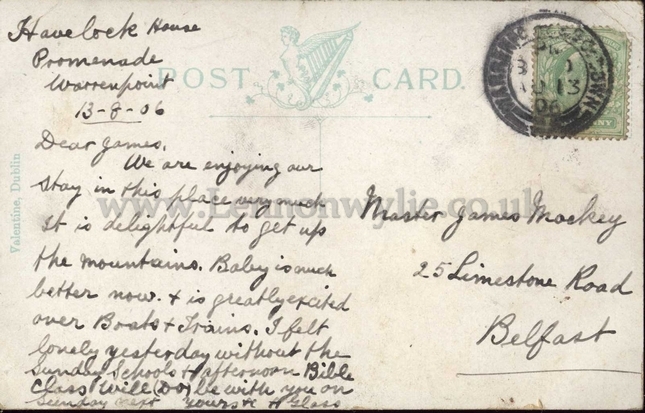 Havelock House
Promenade
Warrenpoint
13-8-06
POST CARD.
Dear James,
We are enjoying our
stay in this place very much
it is delightful to get up
the mountains. Baby is much
better now. & is greatly excited
over Boats & Trains. I felt
lonely yesterday without the
Sunday Schools & afternoon Bible
Class Will (DV) be with you on
Sunday next Yours &c A Glass
Master James Mackey
25 Limestone Road
Belfast
Valentine, Dublin
www.Lennonwylie.co.uk
AU 13
06